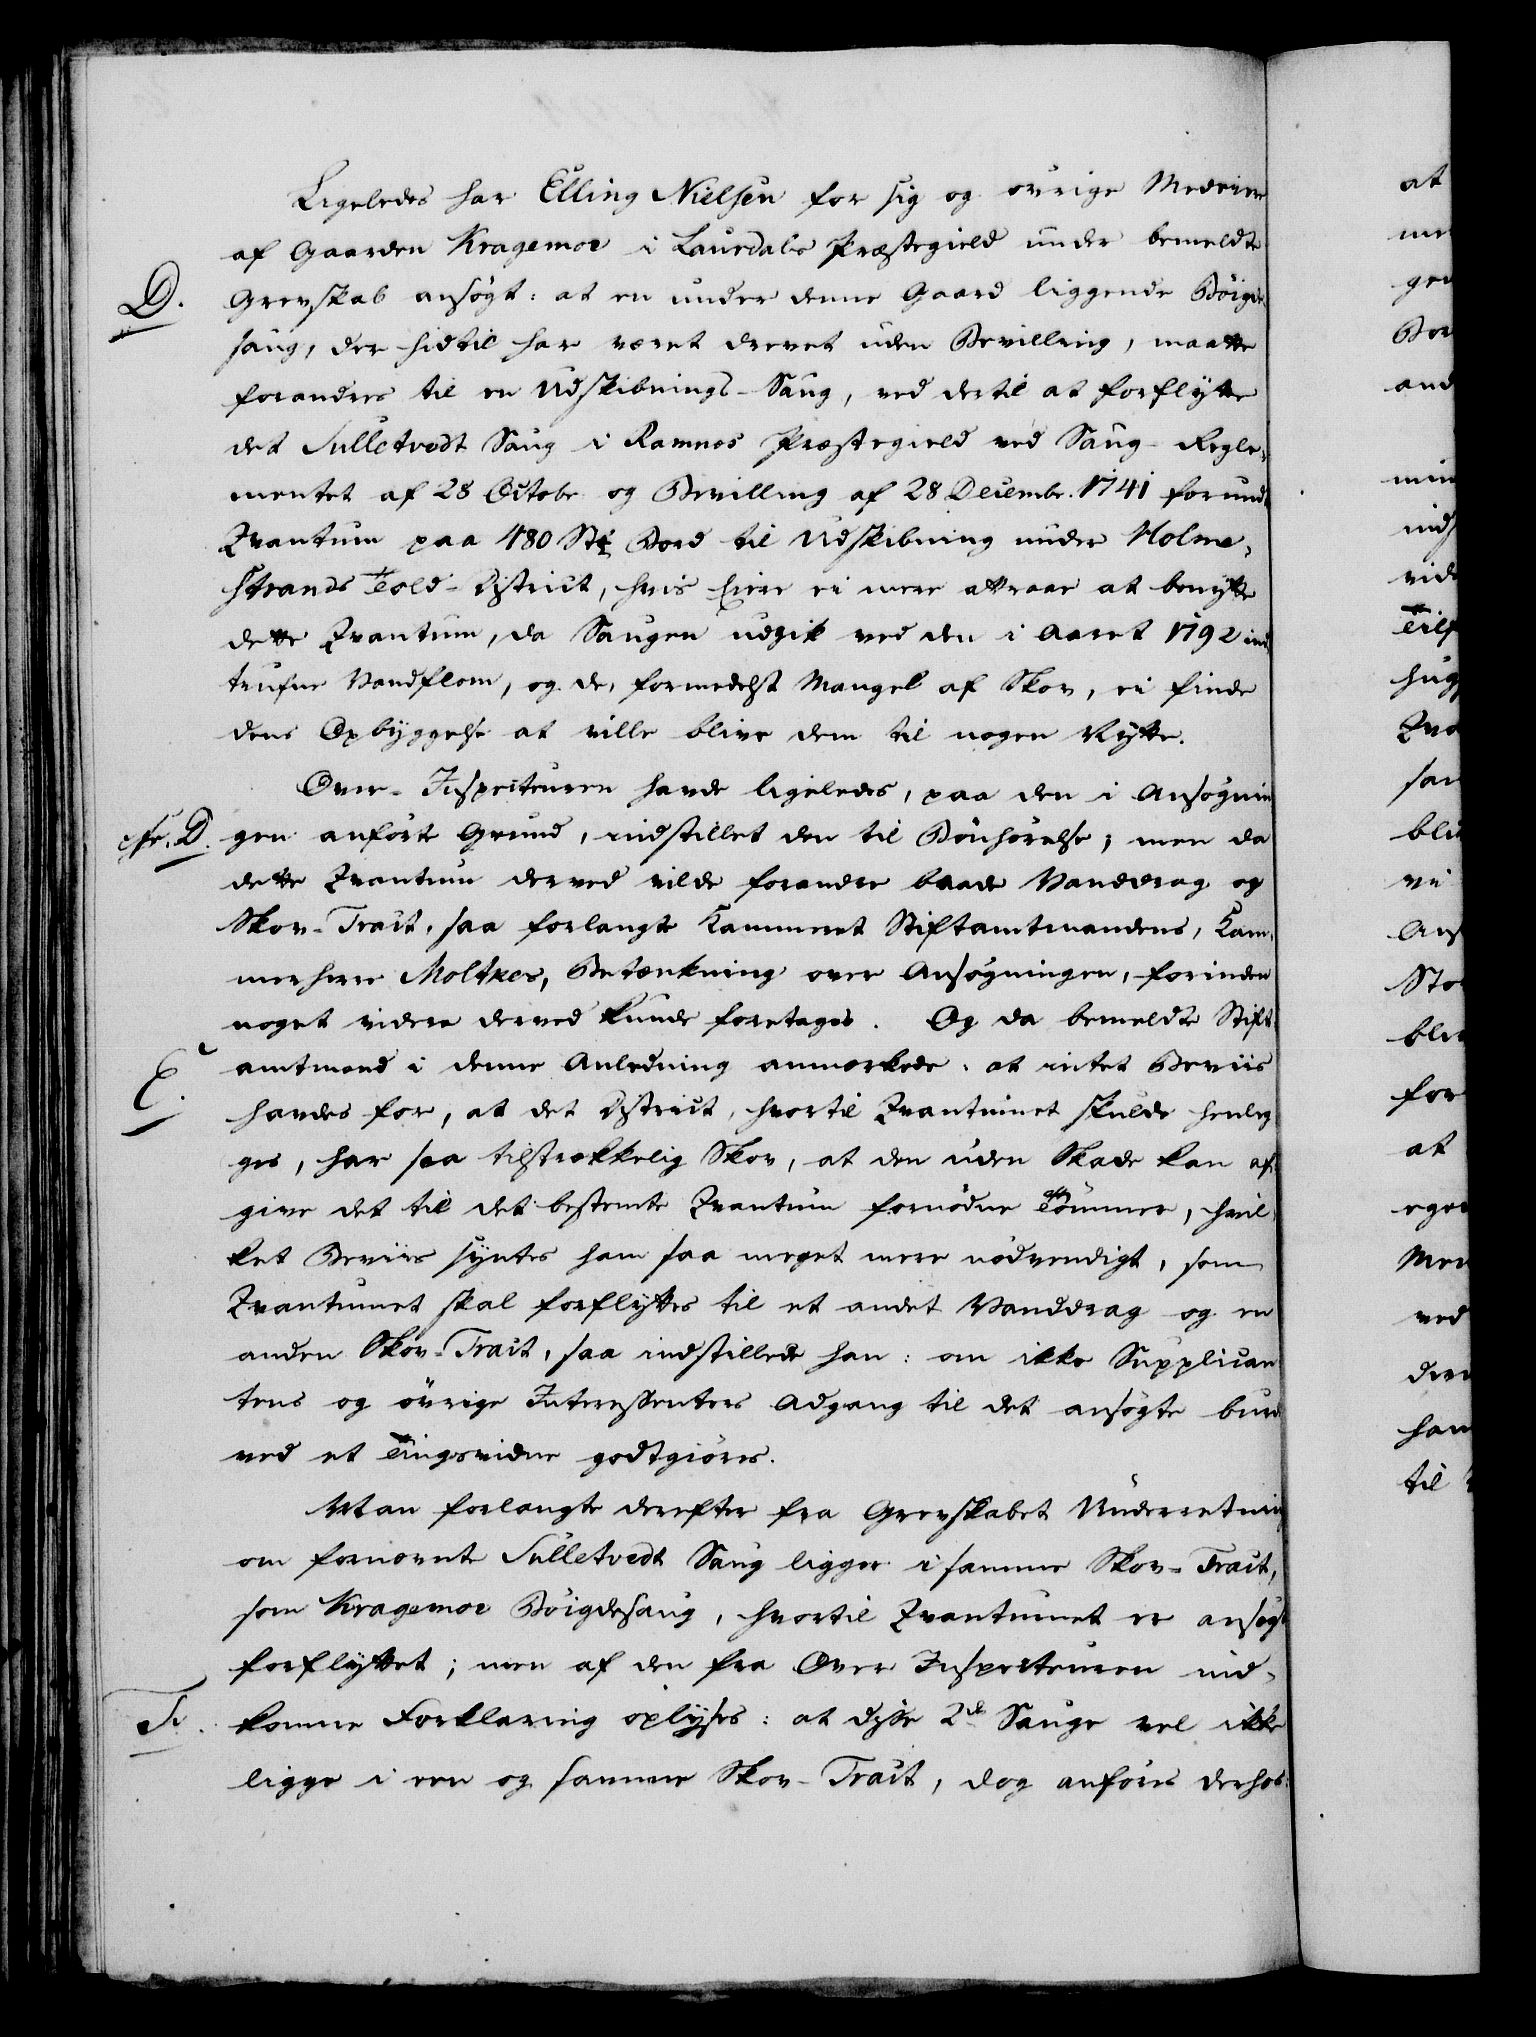 Ligeledes har Elling Nielsen for sig og øvrige Medeiere
af Gaarden Kragemoe i Laurdals Præstegield under bemeldte
D. Grevskab ansøgt: at en under denne Gaard liggende Böigde
saug, der hidtil har været drevet uden Bevilling, maatte
forandres til en Udskibnings-Saug, ved dertil at forflytte
det Sulletvedt Saug i Ramnes Præstegield ved Saug-Regle,
mentet af 28 Octobr og Bevilling af 28 Decembr. 1741 forundte
Qvantum paa 480 Stk Bord til Udskibning under Holme,
strands Told-District, hvis Eiere ei mere attraae at benytte
dette Qvantum, da Saugen udgik ved den i Aaret 1792 ind
trufne Vandflom, og de, formedelst Mangel af Skov, ei finde
dens Opbyggelse at ville blive dem til nogen Nytte.
Over-Inspecteuren havde ligeledes, paa den i Ansøgnin
cfr. D. gen anførte Grund, indstillet den til Bönhörelse; men da
dette Qvantum derved vilde forandre baade Vanddrag og
Skov-Tract, saa forlangte Kammeret Stiftamtmandens, Kam,
merherre Moltkes, Betænkning over Ansøgningen, forinden
noget videre derved kunde foretages. Og da bemeldte Stift
E. amtmand i denne Anledning anmærkede: at intet Beviis
havdes for, at det District, hvortil Qvantumet skulde henleg
ges, har saa tilstrækkelig Skov, at den uden Skade kan af,
give det til det bestemte Qvantum fornødne Tömmer, hvil,
ket Beviis syntes ham saa meget mere nödvendigt, som
Qvantumet skal forflyttes til et andet Vanddrag og en
anden Skov-Tract, saa indstillede han: om ikke Supplican
tens og övrige Interessenters Adgang til det ansøgte burde
ved et Tingsvidne godtgiöres.
Man forlangte derefter fra Grevskabet Underretning
om fornævnte Sulletvedt Saug ligger i samme Skov-Tract,
som Kragemoe Böigdesaug, hvortil Qvantumet er ansøgt
forflyttet; men af den fra Over Inspecteuren ind-
F. komne Forklaring oplyses: at disse 2de Sauge vel ikke
ligge i een og samme Skov-Tract, dog anføres derhos:
at
ved
til